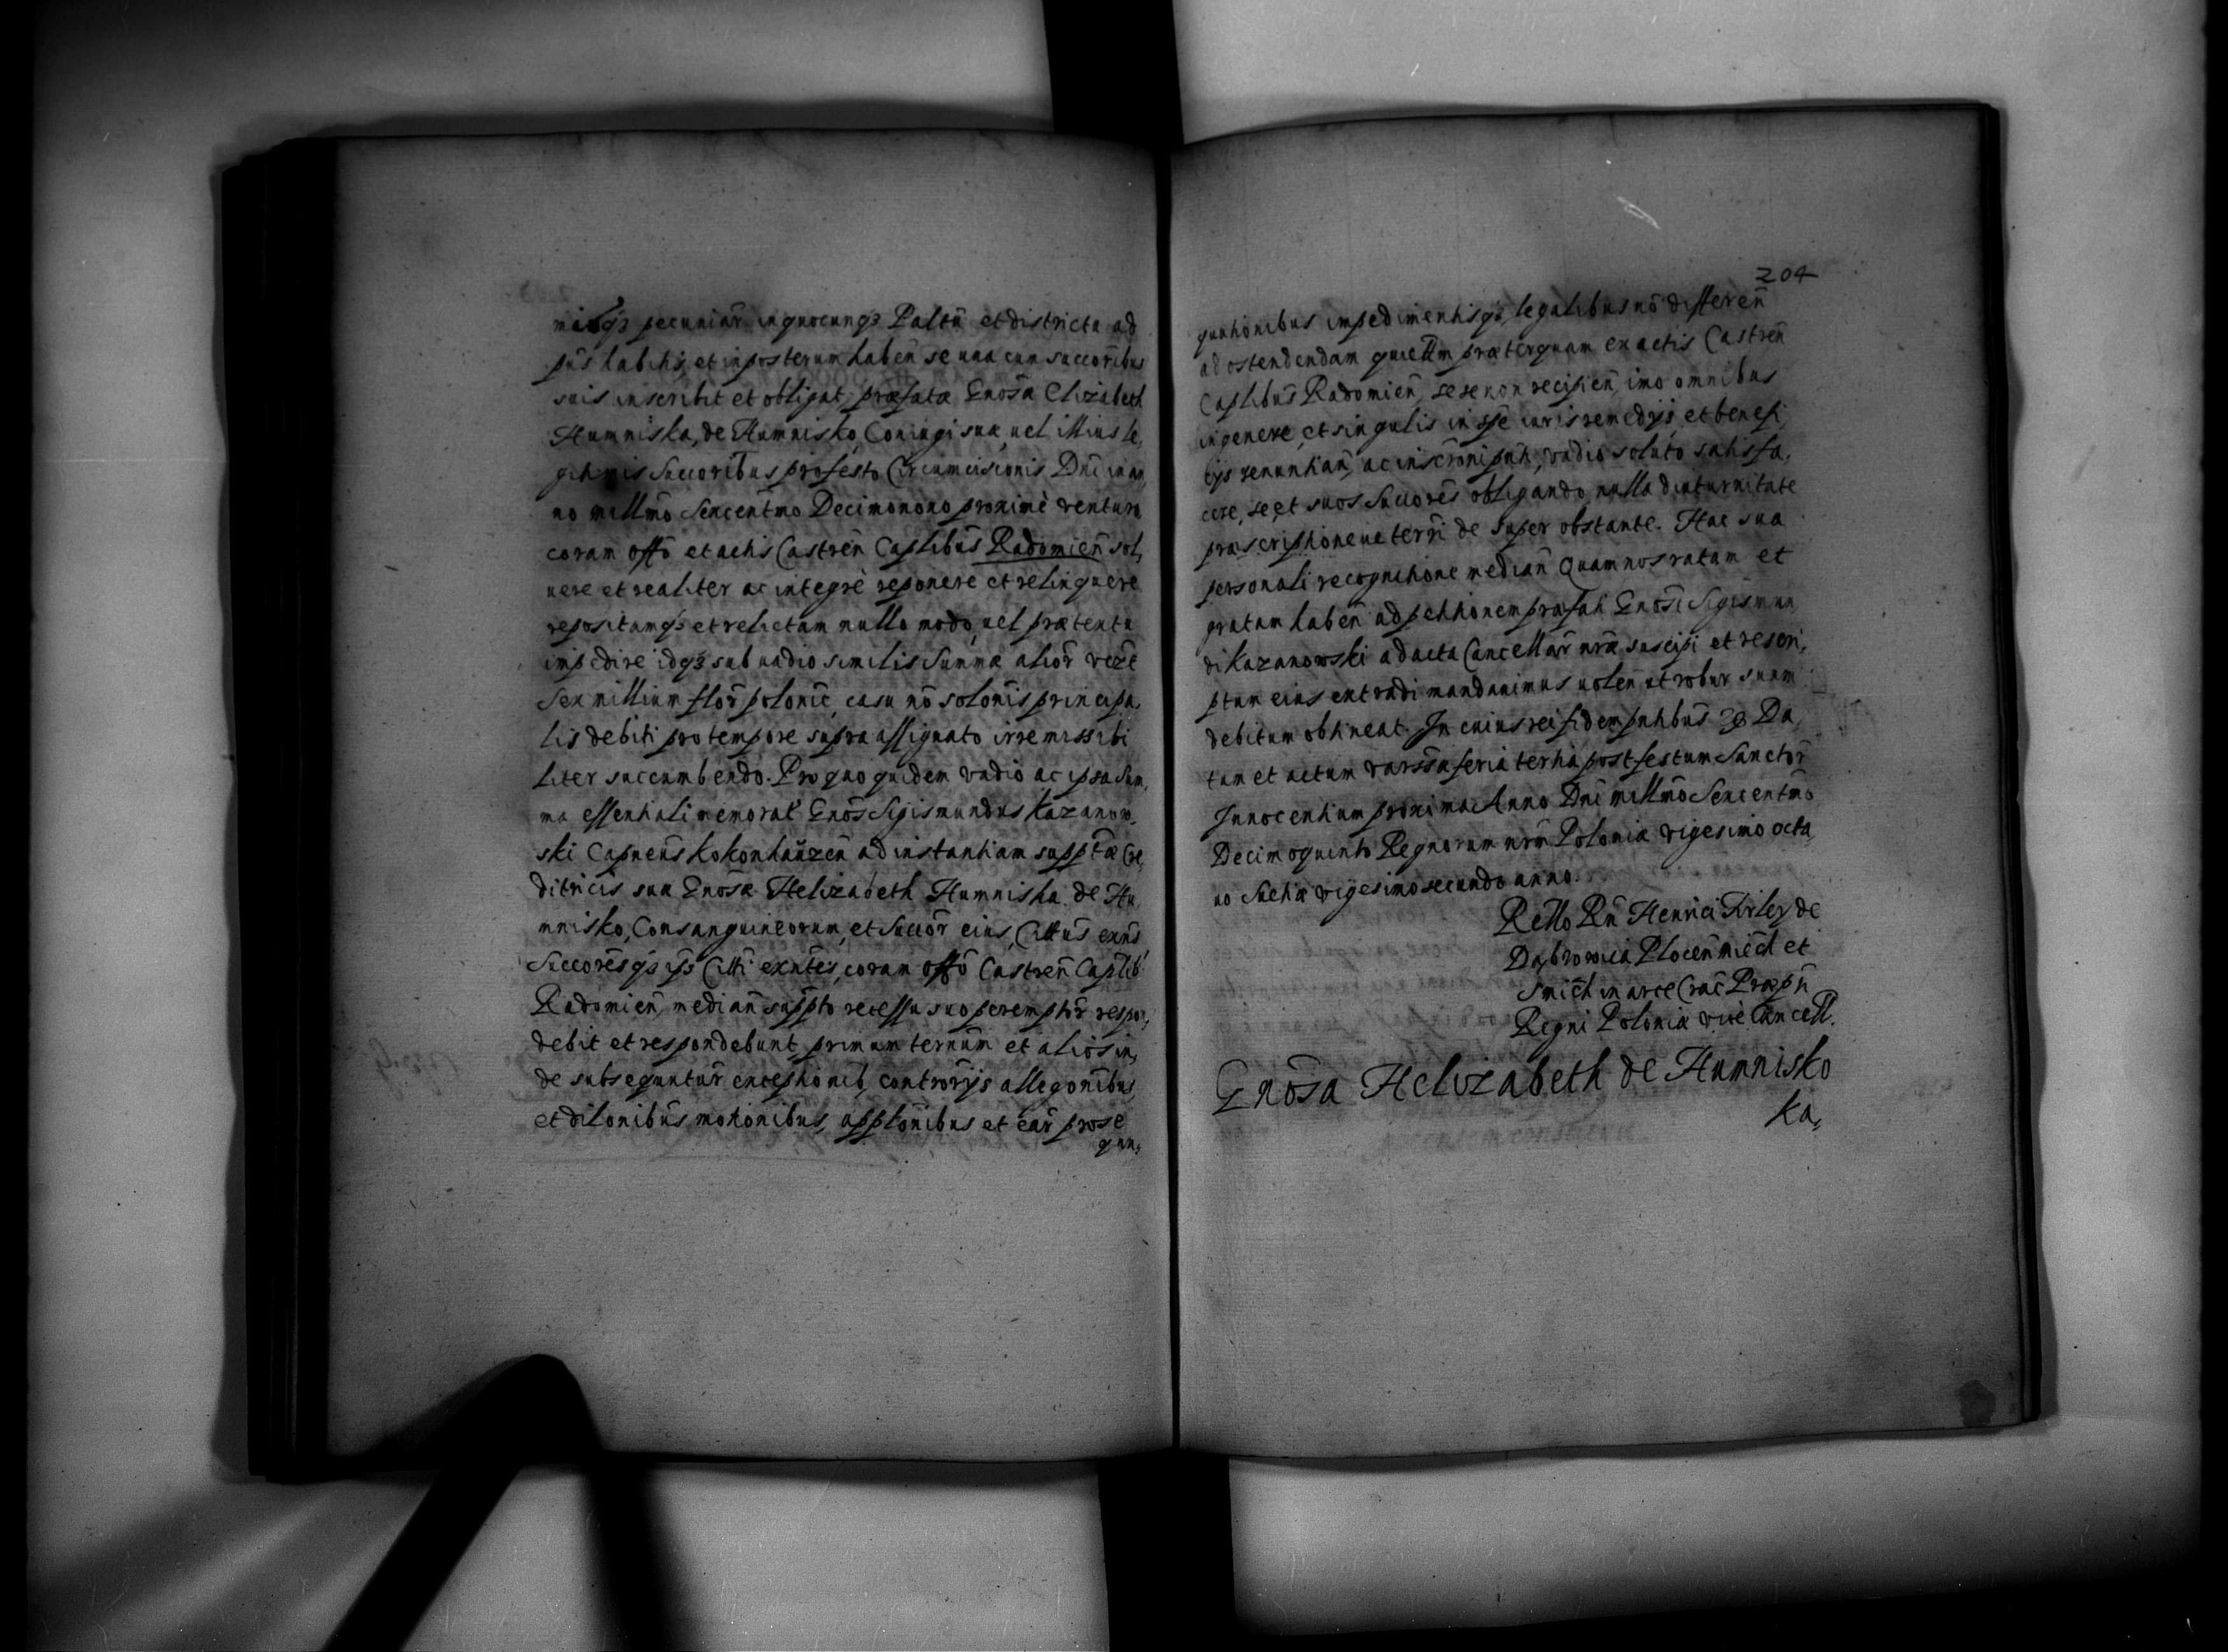 pecuniar̄ in quocunqȝ Paltū et districtu ad
pn̄s habitis, et in posterum haben̄ se una cum succorībus
suis inscribit et obligat, præfatæ Gnōsæ Elizabeth
Humniska, de Humnisko, Coniugi suæ, uel illius le,
gitimis Succoribus pro festo Circumcisionis Dn̄i in an,
no mill̄mo Sexcent̄mo Decimonono proximè venturo,
coram offō et actis Castren̄ Caplibūs Radomien̄ sol,
uere et realiter ac integrè reponere et relinquere
repositamqȝ et relictam nullo modo, uel prætextu
impedire idqȝ sub uadio similis Summæ alior̄
Sex millium flor̄ polonic̄, casu nō solōnis principa,
lis debiti pro tempore supra assignato irremissibi
liter succumbendo. Pro quo quidem vadio ac ipsa Sum,
ma essentiali memorat̄ Gnōs Sigismundus Kazanow,
ski Capneūs Kokonhaūzen̄ ad instantiam supptæ Cre,
ditricis suæ Gnōsæ Helizabeth Humniska de Hu
mnisko, Consanguineorum, et Succor̄ eius, Cittūs
Succorēsqȝ Citti coram offō Castren̄ Caplib̄
Radomien̄, median̄ suppto recessu suo peremptor̄ respon,
debit et respondebunt, primum ternūm et aliōs in,
de subsequuntur̄ exceptionib̄, controrijs allegōnibus,
et dilōnibūs motionibus, applōnibus et ear̄ prose
quu,
204
quutionibus impedimentisqȝ, legalibus nō differen̄
ad ostendendam quiettm præterquam ex actis Castren̄
Caplibūs Radomien̄, sese non recipien̄, imo omnibus
in genere, et singulis in spē iuris remedijs, et benefi,
cijs renuntian̄, ac inscrōni pnti, vadio soluto satisfa,
cere, se, et suos Succorēs obligando, nulla diuturnitate
præscriptioneue terrī de super obstante. Hac sua
personali recognitione median̄ Quam nos ratam et
gratam haben̄ ad petitionem præfati Gnōsi Sigismun
di Kazanowski ad acta Cancellar̄ nræ suscipi et rescri,
ptum eius extradi mandauimus uolen̄ ut robur suum
debitum obtineat. In cuius rei fidem pntibūs Da,
tum et actum Varss̄a feria tertia post festum Sanctor̄
Innocentium proxima Anno Dn̄i mill̄mo Sexcent̄mo
Decimoquinto Regnorum nrm Poloniæ vigesimo octa,
uo Sueciæ vigesimo secundo anno.
Rello Rn̄ Henrici Firley de
Dąbrowica Plocen̄ Miec̄h et
S Mic̄h in arce Crac̄ Præpti
Regni Poloniæ vice Cancell.
Gnōsa Helizabeth de Humnisko
Ka,